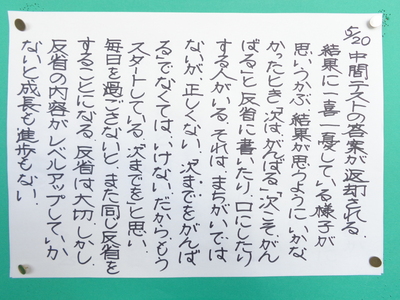 5/20 中間テストの答案が返却される.
結果に一喜一憂している様子が
思いうかぶ. 結果が思うようにいかな
かったとき「次は、がんばる」「次こそがん
ばる」と反省に書いたり、口にしたり
する人がいる. それは、まちがいでは
ないが、正しくない. 次までをがんば
る」でなくては、いけない. だから、もう
スタートしている.「次までを」と思い.
毎日を過ごさないと、また同じ反省を
することになる. 反省は大切. しかし、
反省の内容がレベルアップしていか
ないと成長も進歩もない.